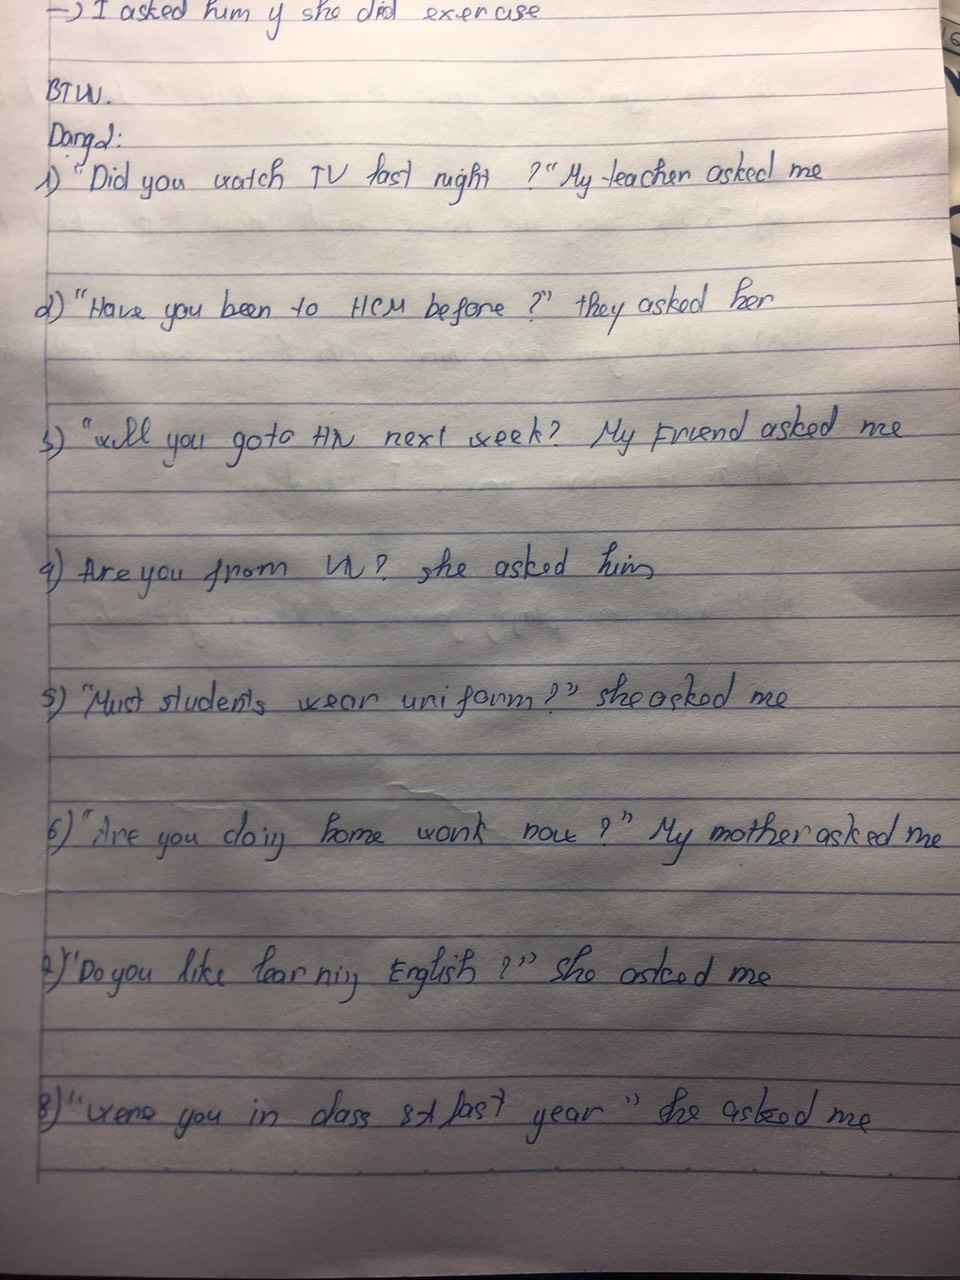 -> I asked him if she did exercise
BTVN.
Dạng 2:
1) "Did you watch TV last night ?" My teacher asked me
2) "Have you been to HCM before ?" they asked her
3) "will you go to HN next week? My Friend asked me
4) Are you from VN? she asked him
5) "Must students wear uniform?" she asked me
6) "Are you doing home work now ?" My mother asked me
7) "Do you like learning English ?" She asked me
8) "were you in class 8A last year " she asked me